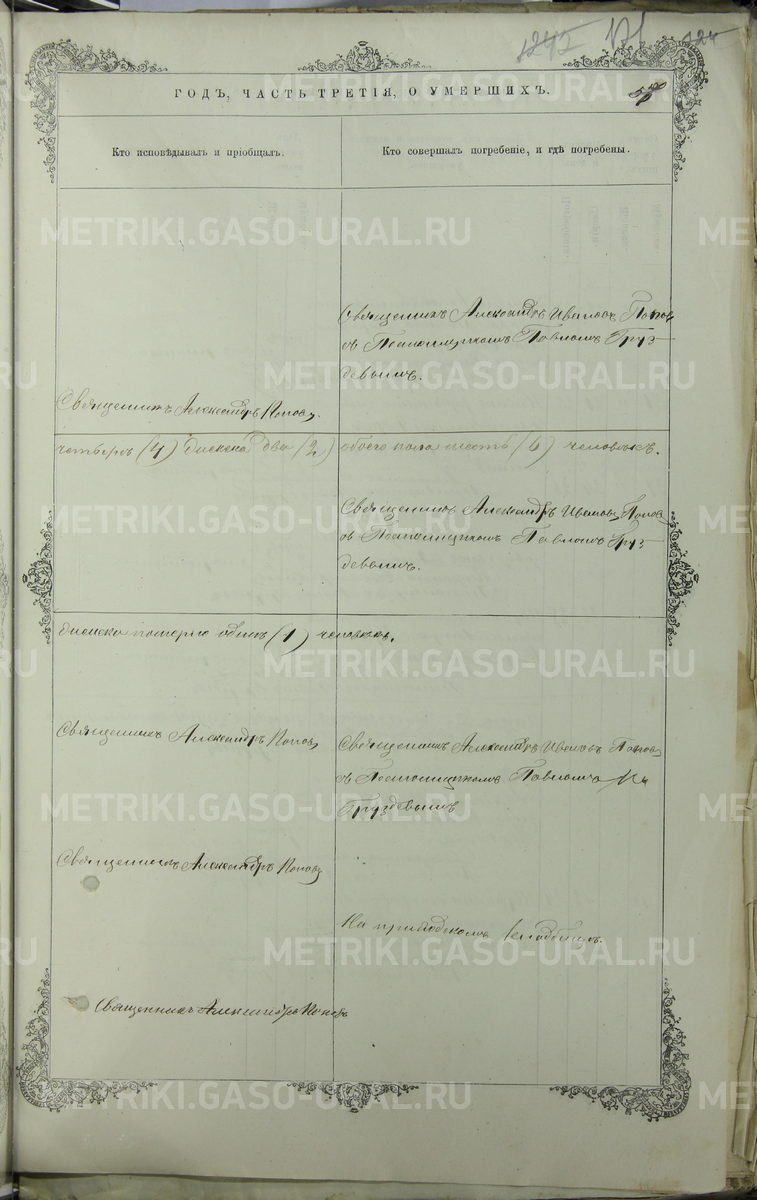 1242 171 224
ГОДЪ, ЧАСТЬ ТРЕТІЯ, О УМЕРШИХЪ.
Кто исповѣдывалъ и пріобщалъ.
Кто совершалъ погребеніе, и гдѣ погребены.
METRIKI.GASO-URAL.RU
Священникъ Александръ Ивановъ Поповъ
съ Псаломщикомъ Павломъ Груз-
девымъ.
Священникъ Александръ Поповъ.
четыре (4) женска два (2) обоего пола шесть (6) человѣкъ.
Священникъ Александръ Ивановъ Поповъ
съ Псаломщикомъ Павломъ Груз-
девымъ.
женска померло одинъ (1) человѣкъ.
Священникъ Александръ Поповъ
Священникъ Александръ Ивановъ Поповъ
съ Псаломщикомъ Павломъ
Груздевымъ
Священникъ Александръ Поповъ
На приходскомъ кладбищѣ.
Священникъ Александръ Поповъ